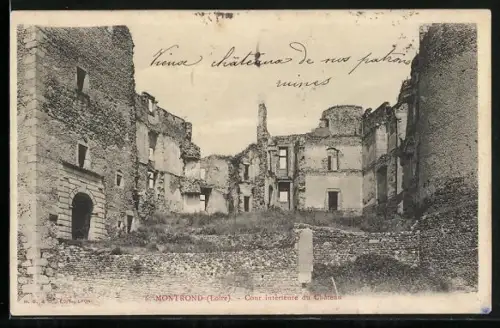 Vieux châteaux de nos patrons
ruines
MONTROND (Loire). - Cour intérieure du Château